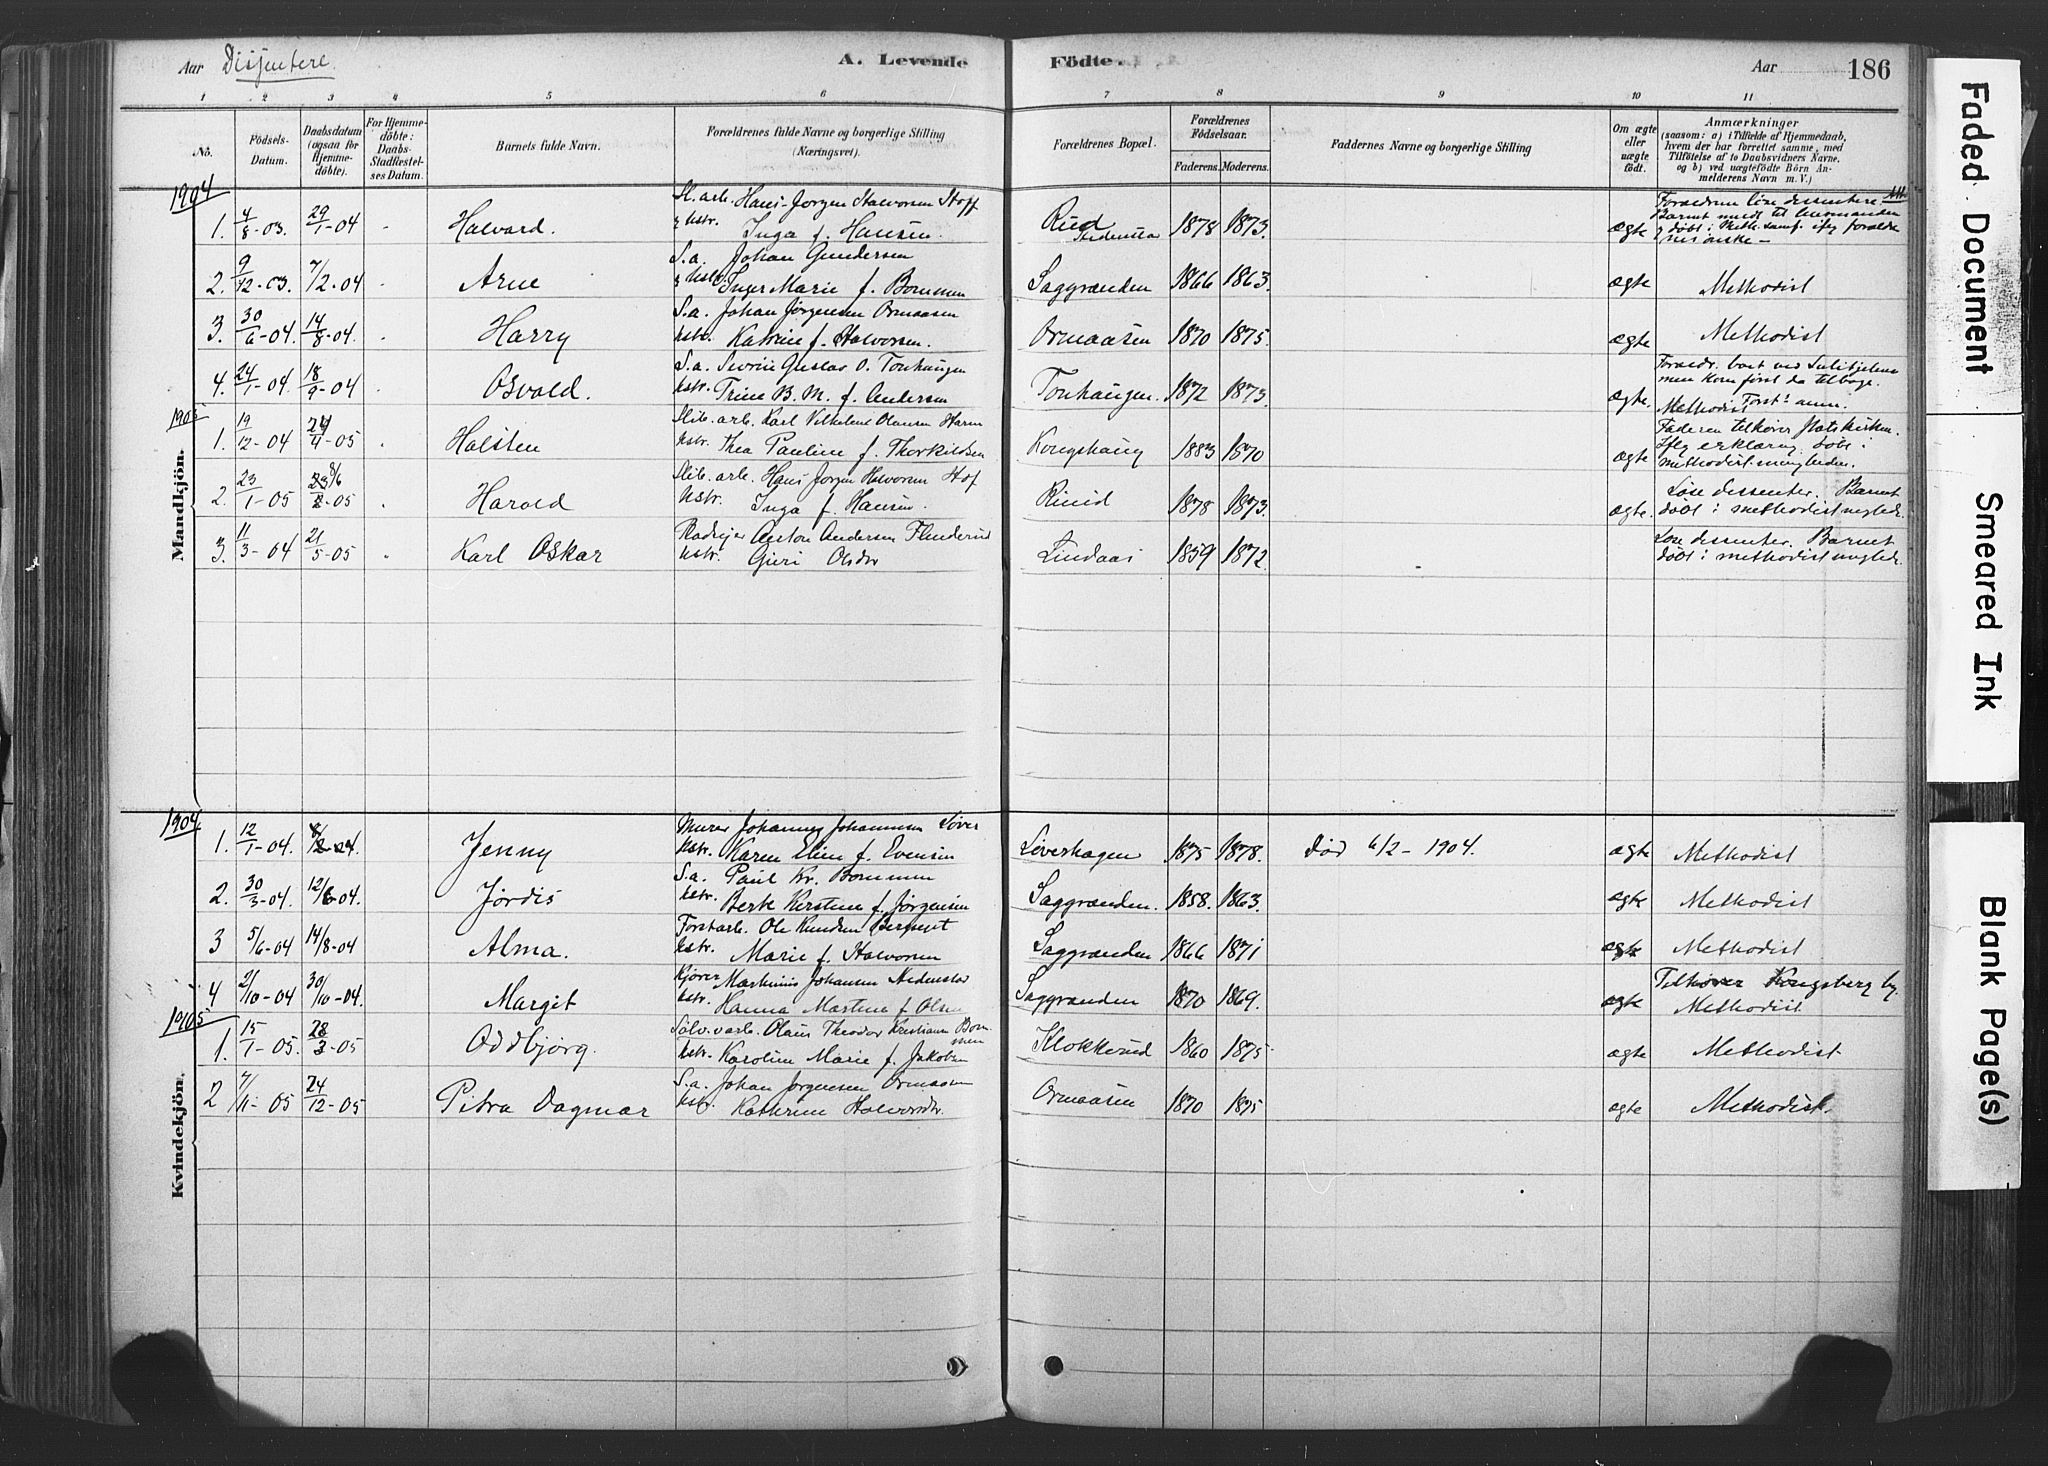 Aar Dissentere. A. Levende Födte. Aar 186
1 2 3 4 5 6 7 8 9 10 11
No.
Födsels-Datum.
Daabsdatum (ogsaa for Hjemmedöbte).
For Hjemmedöbte: Daabs-Stadfæstelses Datum.
Barnets fulde Navn.
Forældrenes fulde Navne og borgerlige Stilling (Næringsvei).
Forældrenes Bopæl.
Forældrenes Födselsaar.
Faderens. Moderens.
Faddernes Navne og borgerlige Stilling
Om ægte eller uægte födt.
Anmærkninger
(saasom: a) i Tilfælde af Hjemmedaab, hvem der har forrettet samme, med Tilföielse af to Daabsvidners Navne. og b) ved uægtefödte Börn Anmelderens Navn m. V.)
Mandkjön.
1904
1. 4/8-03. 29/1-04 Halvard. Hans Jørgen Halvorsen Hoff Inga f. Hansen. Rud 1878 1873. ægte
2. 9/12-03. 7/2-04 Arne S.a. Johan Gundersen Inger Marie f. Bommen Saggrenden 1866 1863. ægte Methodist
3. 30/6-04. 14/8-04 Harry S.a. Johan Jørgensen Ormaasen Hstr. Katrine f. Halvorsen. Ormaasen 1870 1875. ægte Methodist
4. 24/1-04. 18/9-04 Osvald. S.a. Gustav O. Tonhaugen Hstr. Trine B. M. f. Andersen Tonhaugen. 1872 1873. ægte. men kom først da tilbage. Methodist
1905
1. 19/12-04 24/4-05 Halsten Slib. arb. Karl Vilhelm Olausen Hstr. Thea Pauline f. Thorkildsen Kongshaug 1883 1870 ægte Faderen tilhører Statskirken. Iflg erklæring døbt i methodistmenigheden.
2. 23/1-05 8/6 -05 Harold Slib. arb. Hans Jørgen Halvorsen Hof Hstr. Inga f. Hansen. Ruud 1878 1873. ægte. Løse dissenter. Barnet døbt i methodistmenighed.
3. 11/3-04 21/5-05 Karl Oskar Anton Andersen Flenderud Hstr. Guri Olsdtr Lindaas 1859 1872. Løse dissenter. Barnet døbt i methodistmenighed.
Kvindekjön.
1904
1. 12/1-04. Jenny Murer Johannes Johannesen Løver Hstr. Karen Elise f. Evensen Løverhagen 1875 1878. Død 6/2-1904. ægte Methodist
2. 30/3-04. 12/6-04. Jørdis S.a. Paul Kr. Bommen Hstr. Berte Kirstine f. Jørgensen Saggrenden. 1858. 1863. ægte Methodist
3 5/6-04 14/8-04 Alma. Forstarb. Ole Knudsen Hstr. Marie f. Halvorsen Saggrenden 1866 1871 ægte Methodist
4 2/10-04 30/10-04. Margit Kjører Martinius Johansen Hstr. Hanna Martine f. Olsen Saggrenden 1870 1869. ægte Tilhører Kongsberg by. Methodist
1905
1. 15/1-05. 28/2-05 Oddbjørg. Sølvv.arb. Olaus Theodor Kristiansen Bommen Hstr. Karoline Marie f. Jakobsen Klokkerud 1860 1875 ægte Methodist
2 7/11-05 24/12-05 Petra Dagmar S.a. Johan Jørgensen Ormaasen Hstr. Kathrine Halvorsdtr. Ormaasen 1870 1875 ægte Methodist.
Faded Document
Smeared Ink
Blank Page(s)